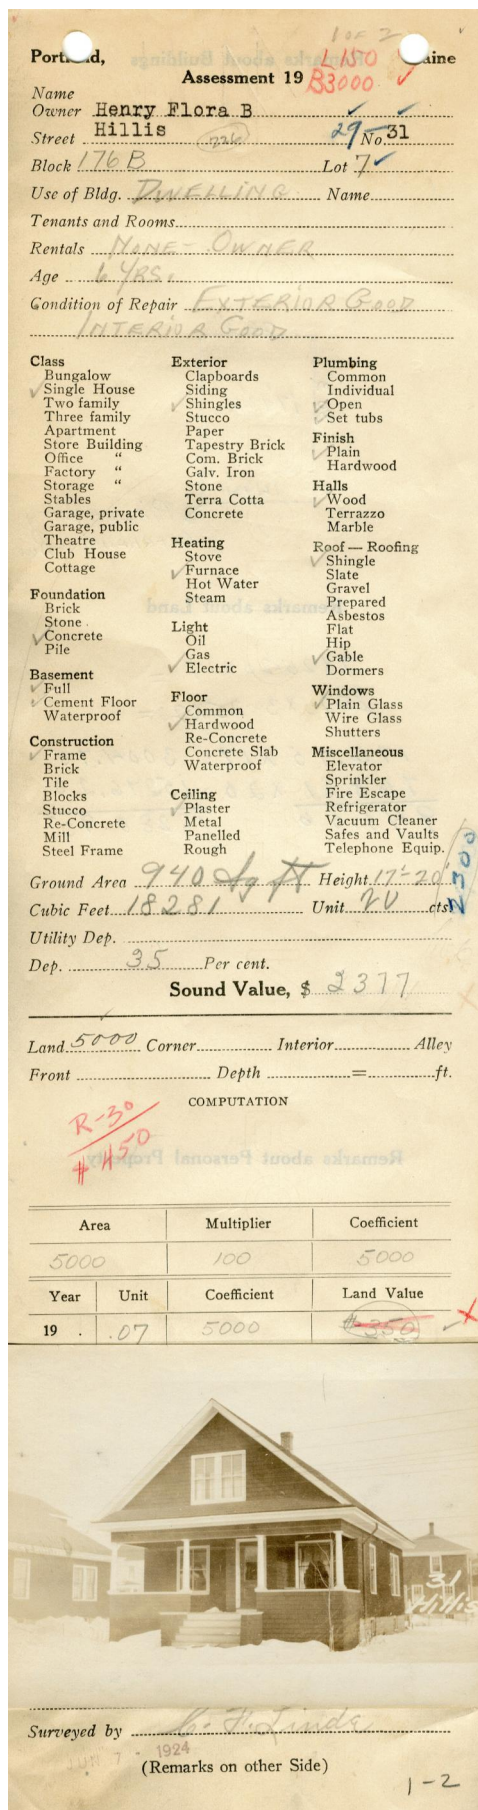 1 of 2
Portland, Maine
L150
Assessment 19 B3000
Name
Owner Henry Flora B
Street Hillis 226 29-No.31
Block 176 B Lot 7
Use of Bldg. Dwelling Name
Tenants and Rooms
Rentals None - Owner
Age 6 yrs.
Condition of Repair Exterior Good
Interior Good
Class
Bungalow
Single House
Two family
Three family
Apartment
Store Building
Office "
Factory "
Storage "
Stables
Garage, private
Garage, public
Theatre
Club House
Cottage
Foundation
Brick
Stone
Concrete
Pile
Basement
Full
Cement Floor
Waterproof
Construction
Frame
Brick
Tile
Blocks
Stucco
Re-Concrete
Mill
Steel Frame
Exterior
Clapboards
Siding
Shingles
Stucco
Paper
Tapestry Brick
Com. Brick
Galv. Iron
Stone
Terra Cotta
Concrete
Heating
Stove
Furnace
Hot Water
Steam
Light
Oil
Gas
Electric
Floor
Common
Hardwood
Re-Concrete
Concrete Slab
Waterproof
Ceiling
Plaster
Metal
Panelled
Rough
Plumbing
Common
Individual
Open
Set tubs
Finish
Plain
Hardwood
Halls
Wood
Terrazzo
Marble
Roof — Roofing
Shingle
Slate
Gravel
Prepared
Asbestos
Flat
Hip
Gable
Dormers
Windows
Plain Glass
Wire Glass
Shutters
Miscellaneous
Elevator
Sprinkler
Fire Escape
Refrigerator
Vacuum Cleaner
Safes and Vaults
Telephone Equip.
Ground Area 940 sq ft Height 17'-20'
Cubic Feet 18281 Unit 20 cts.
2300
Utility Dep.
Dep. 35 Per cent.
Sound Value, $ 2377
Land 5000 Corner Interior Alley
Front Depth = ft.
COMPUTATION
R-30
$450
Remarks about Personal Property
Area Multiplier Coefficient
5000 100 5000
Year Unit Coefficient Land Value
19 . .07 5000 $350
31
Hillis
Surveyed by
JUN 7 - 1924
(Remarks on other Side)
1-2